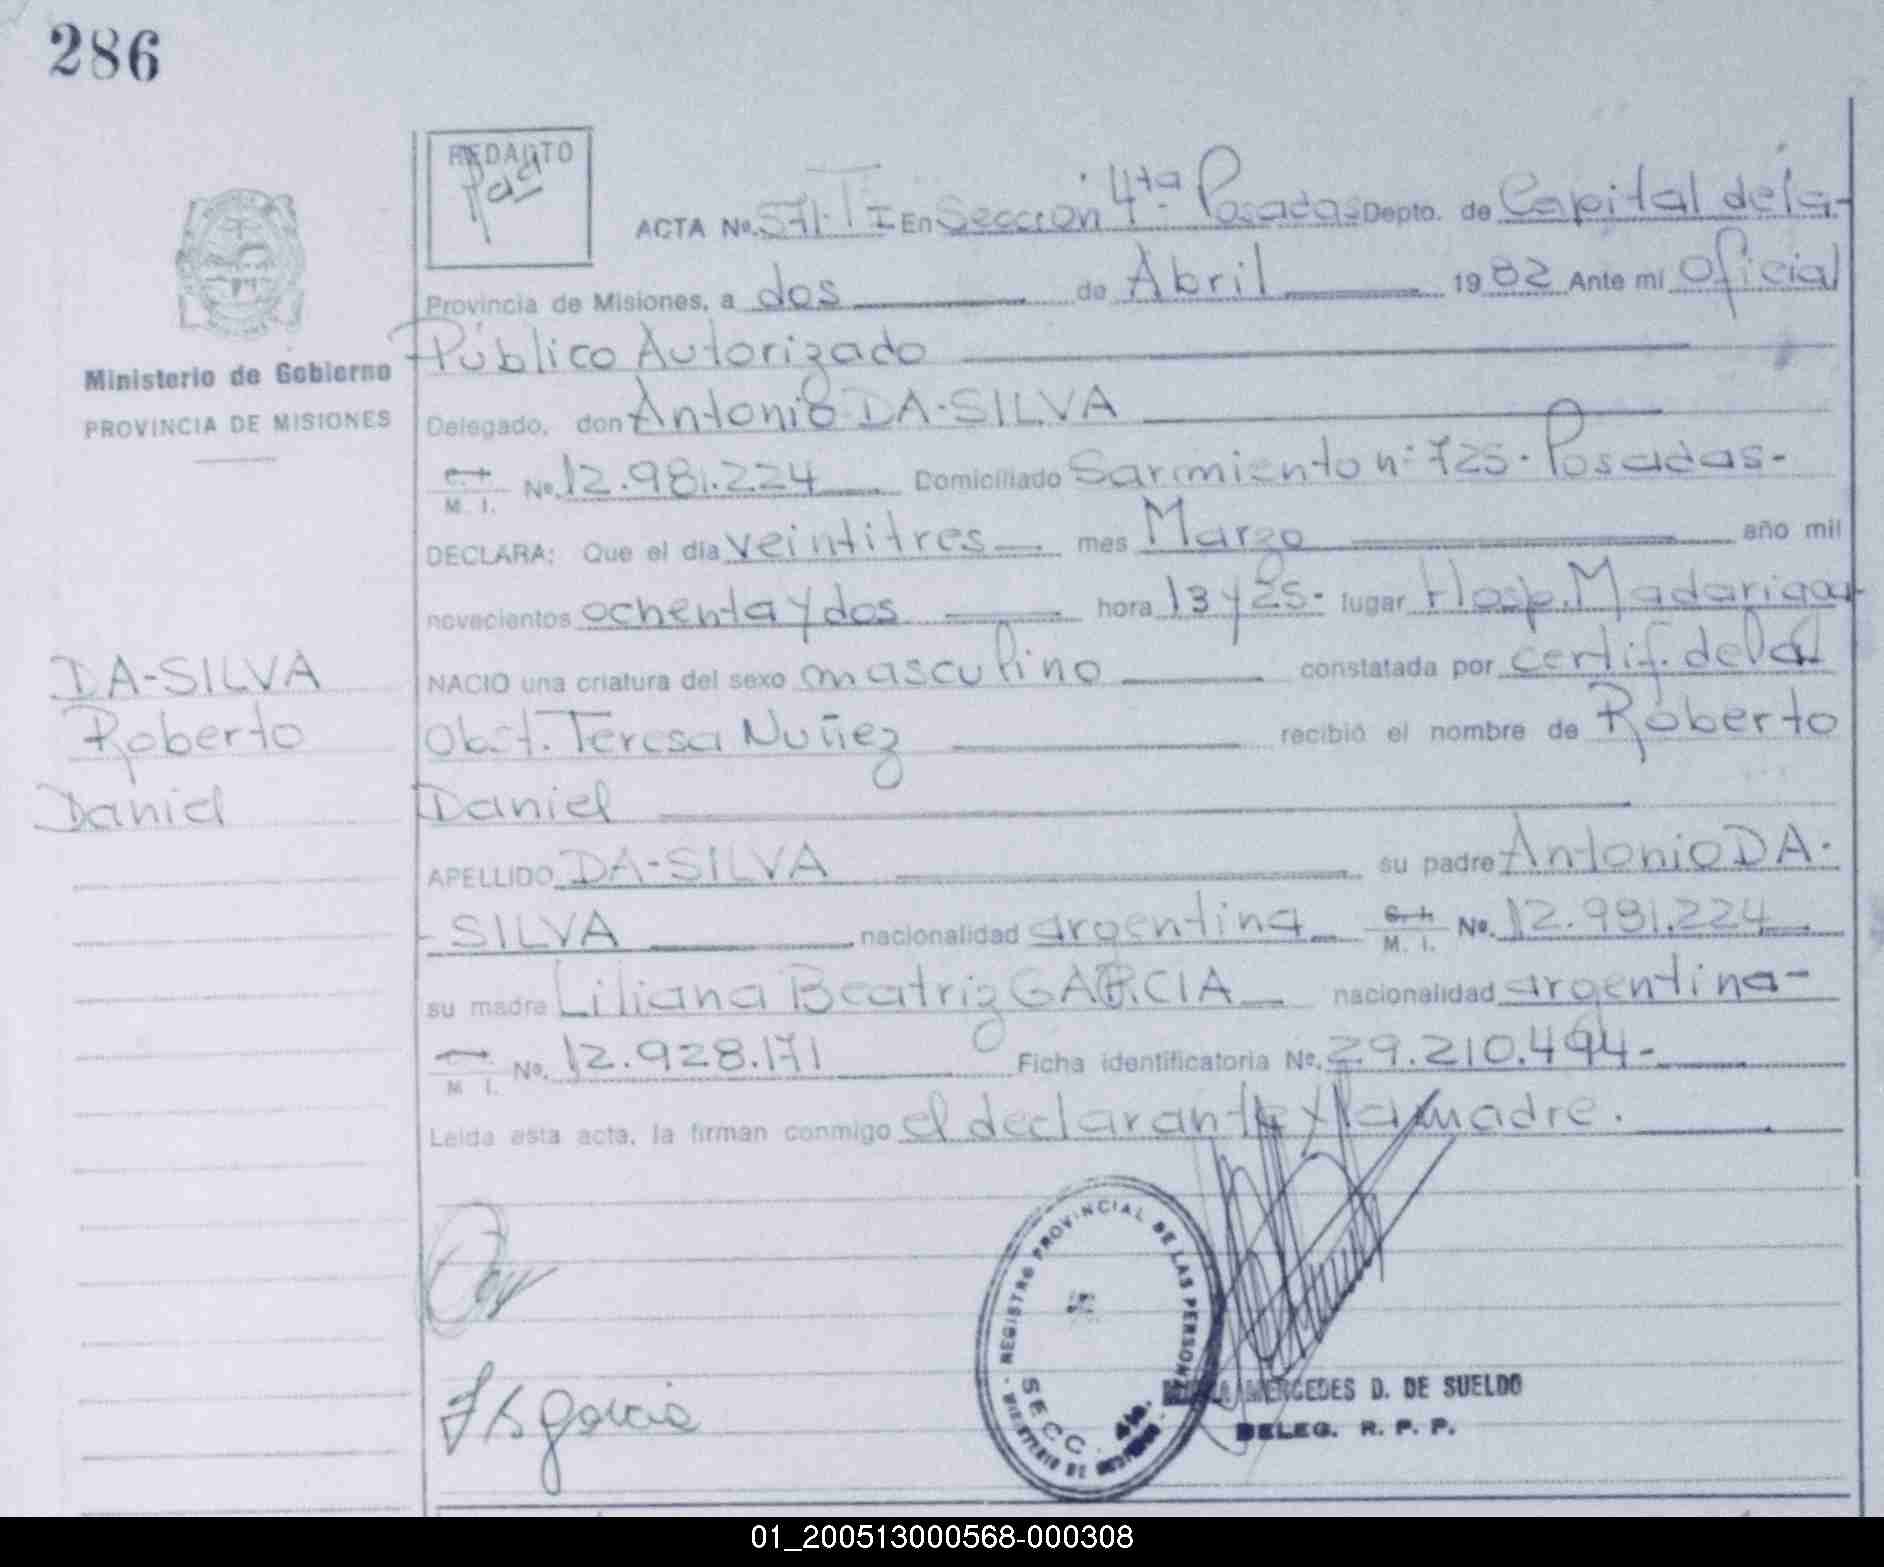 286
REDACTO
ACTA No. 571-T I En Sección 4ta. Posadas Depto. de Capital de la-
Provincia de Misiones, a dos de Abril 1982 Ante mí Oficial
Público Autorizado
Ministerio de Gobierno
PROVINCIA DE MISIONES
Delegado, don Antonio DA-SILVA
M. I. No. 12.981.224 Domiciliado Sarmiento nº 725. Posadas-
DECLARA: Que el día veintitres mes Marzo año mil
novecientos ochenta y dos hora 13 y 25. lugar Hosp. Madariaga
DA-SILVA
NACIO una criatura del sexo masculino constatada por certif. de la
Roberto
Obst. Teresa Nuñez recibió el nombre de Roberto
Daniel
Daniel
APELLIDO DA-SILVA su padre Antonio DA-
-SILVA nacionalidad argentina M. I. No. 12.981.224
su madre Liliana Beatriz GARCIA nacionalidad argentina-
M I. No. 12.928.171 Ficha identificatoria No. 29.210.494-
Leída esta acta, la firman conmigo el declarante y la madre.
REGISTRO PROVINCIAL DE LAS PERSONAS
SECC. 4ta.
MINISTERIO DE GOBIERNO
MERCEDES D. DE SUELDO
DELEG. R. P. P.
Garcia
01_200513000568-000308